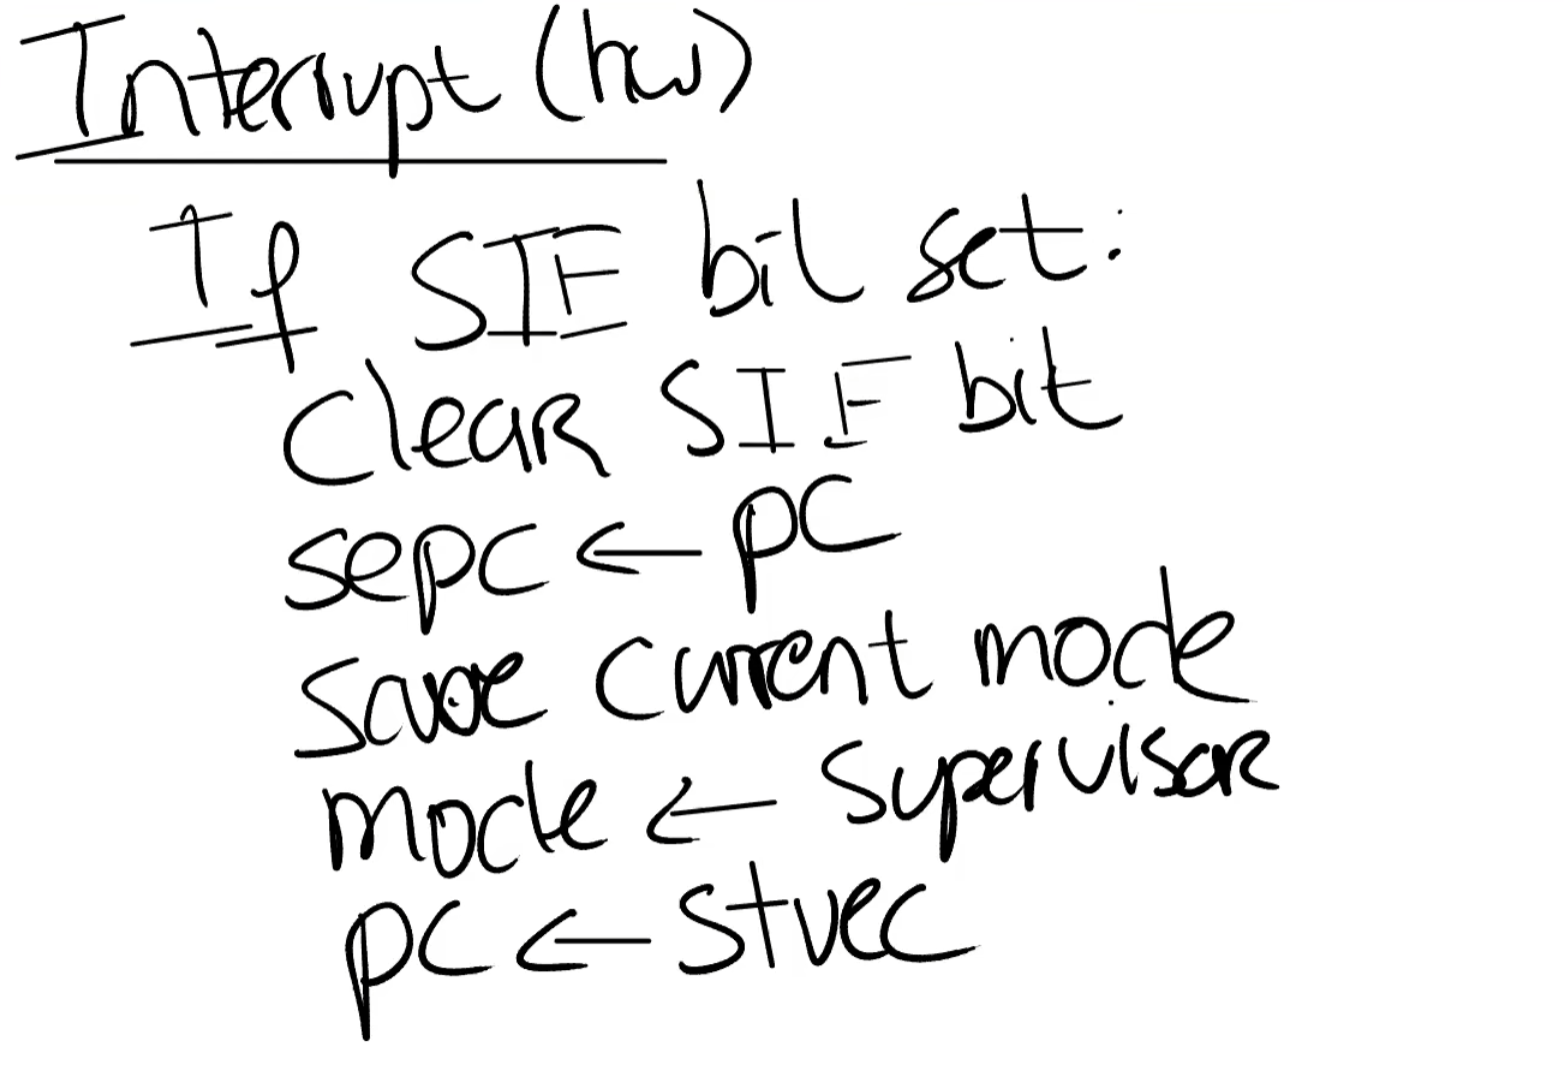 Interrupt (hw)
If SIE bit set:
clear SIE bit
sepc ← pc
save current mode
mode ← supervisor
pc ← stvec